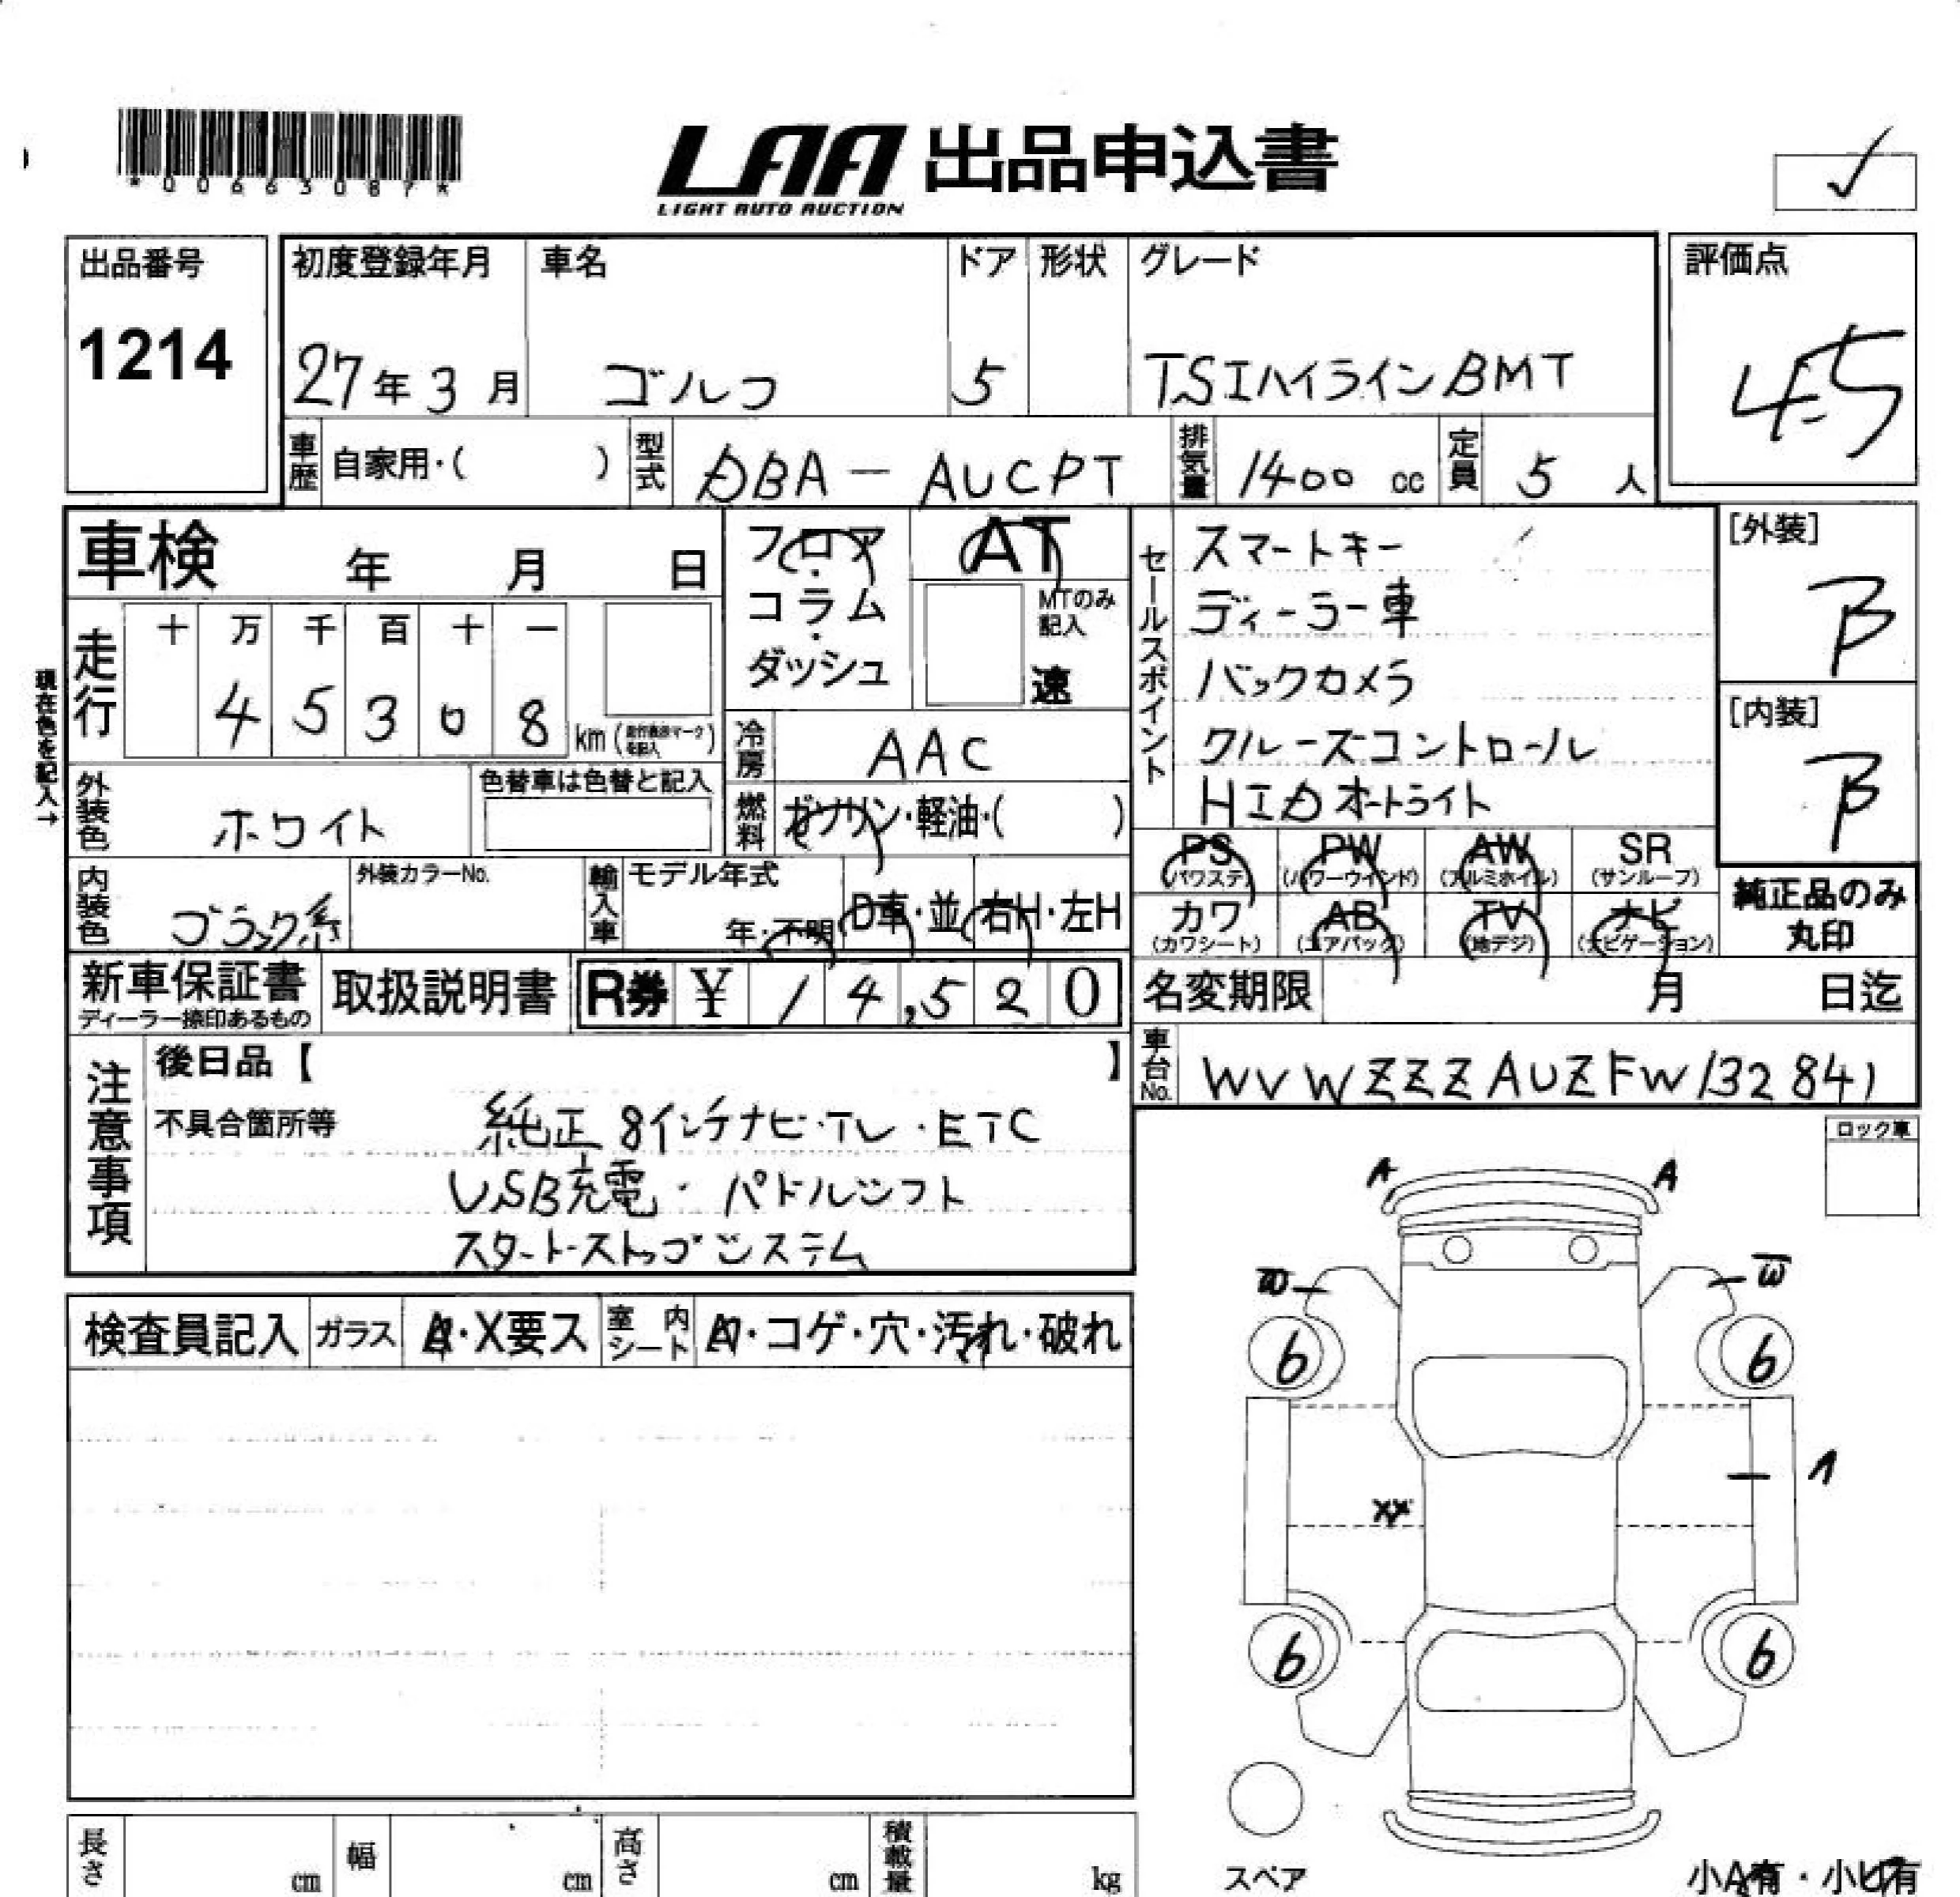 *00663087*
LAA 出品申込書
LIGHT AUTO AUCTION
✓
出品番号
1214
初度登録年月 車名 ドア 形状 グレード
27年3月 ゴルフ 5 TSIハイラインBMT
評価点
4.5
車歴 自家用・( ) 型式 DBA-AUCPT 排気量 1400 cc 定員 5 人
車検 年 月 日
フロア・コラム・ダッシュ
AT
MTのみ記入
速
現在色を記入→
走行 十 万 千 百 十 一
4 5 3 0 8 km
冷房 AAC
外装色 ホワイト 色替車は色替と記入
燃料 ガソリン・軽油・( )
内装色 ブラック系 外装カラーNo. 輸入車 モデル年式 年・不明 D車・並 右H・左H
セールスポイント
スマートキー
ディーラー車
バックカメラ
クルーズコントロール
HIDオートライト
[外装]
B
[内装]
B
PS PW AW SR
(パワステ) (パワーウインド) (アルミホイル) (サンルーフ)
カワ AB TV ナビ
(カワシート) (エアバック) (地デジ) (ナビゲーション)
純正品のみ
丸印
新車保証書 取扱説明書 R券 ¥ 14,520
ディーラー捺印あるもの
名変期限 月 日迄
車台No. WVWZZZAUZFW132841
注意事項
後日品【 】
不具合箇所等 純正8インチナビ・TV・ETC
USB充電・パドルシフト
スタートストップシステム
ロック車
検査員記入 ガラス A・X要ス 室内シート A・コゲ・穴・汚れ・破れ
A A
W W
6 6
1
XX
6 6
スペア
長さ cm 幅 cm 高さ cm 積載量 kg
小A有・小U有